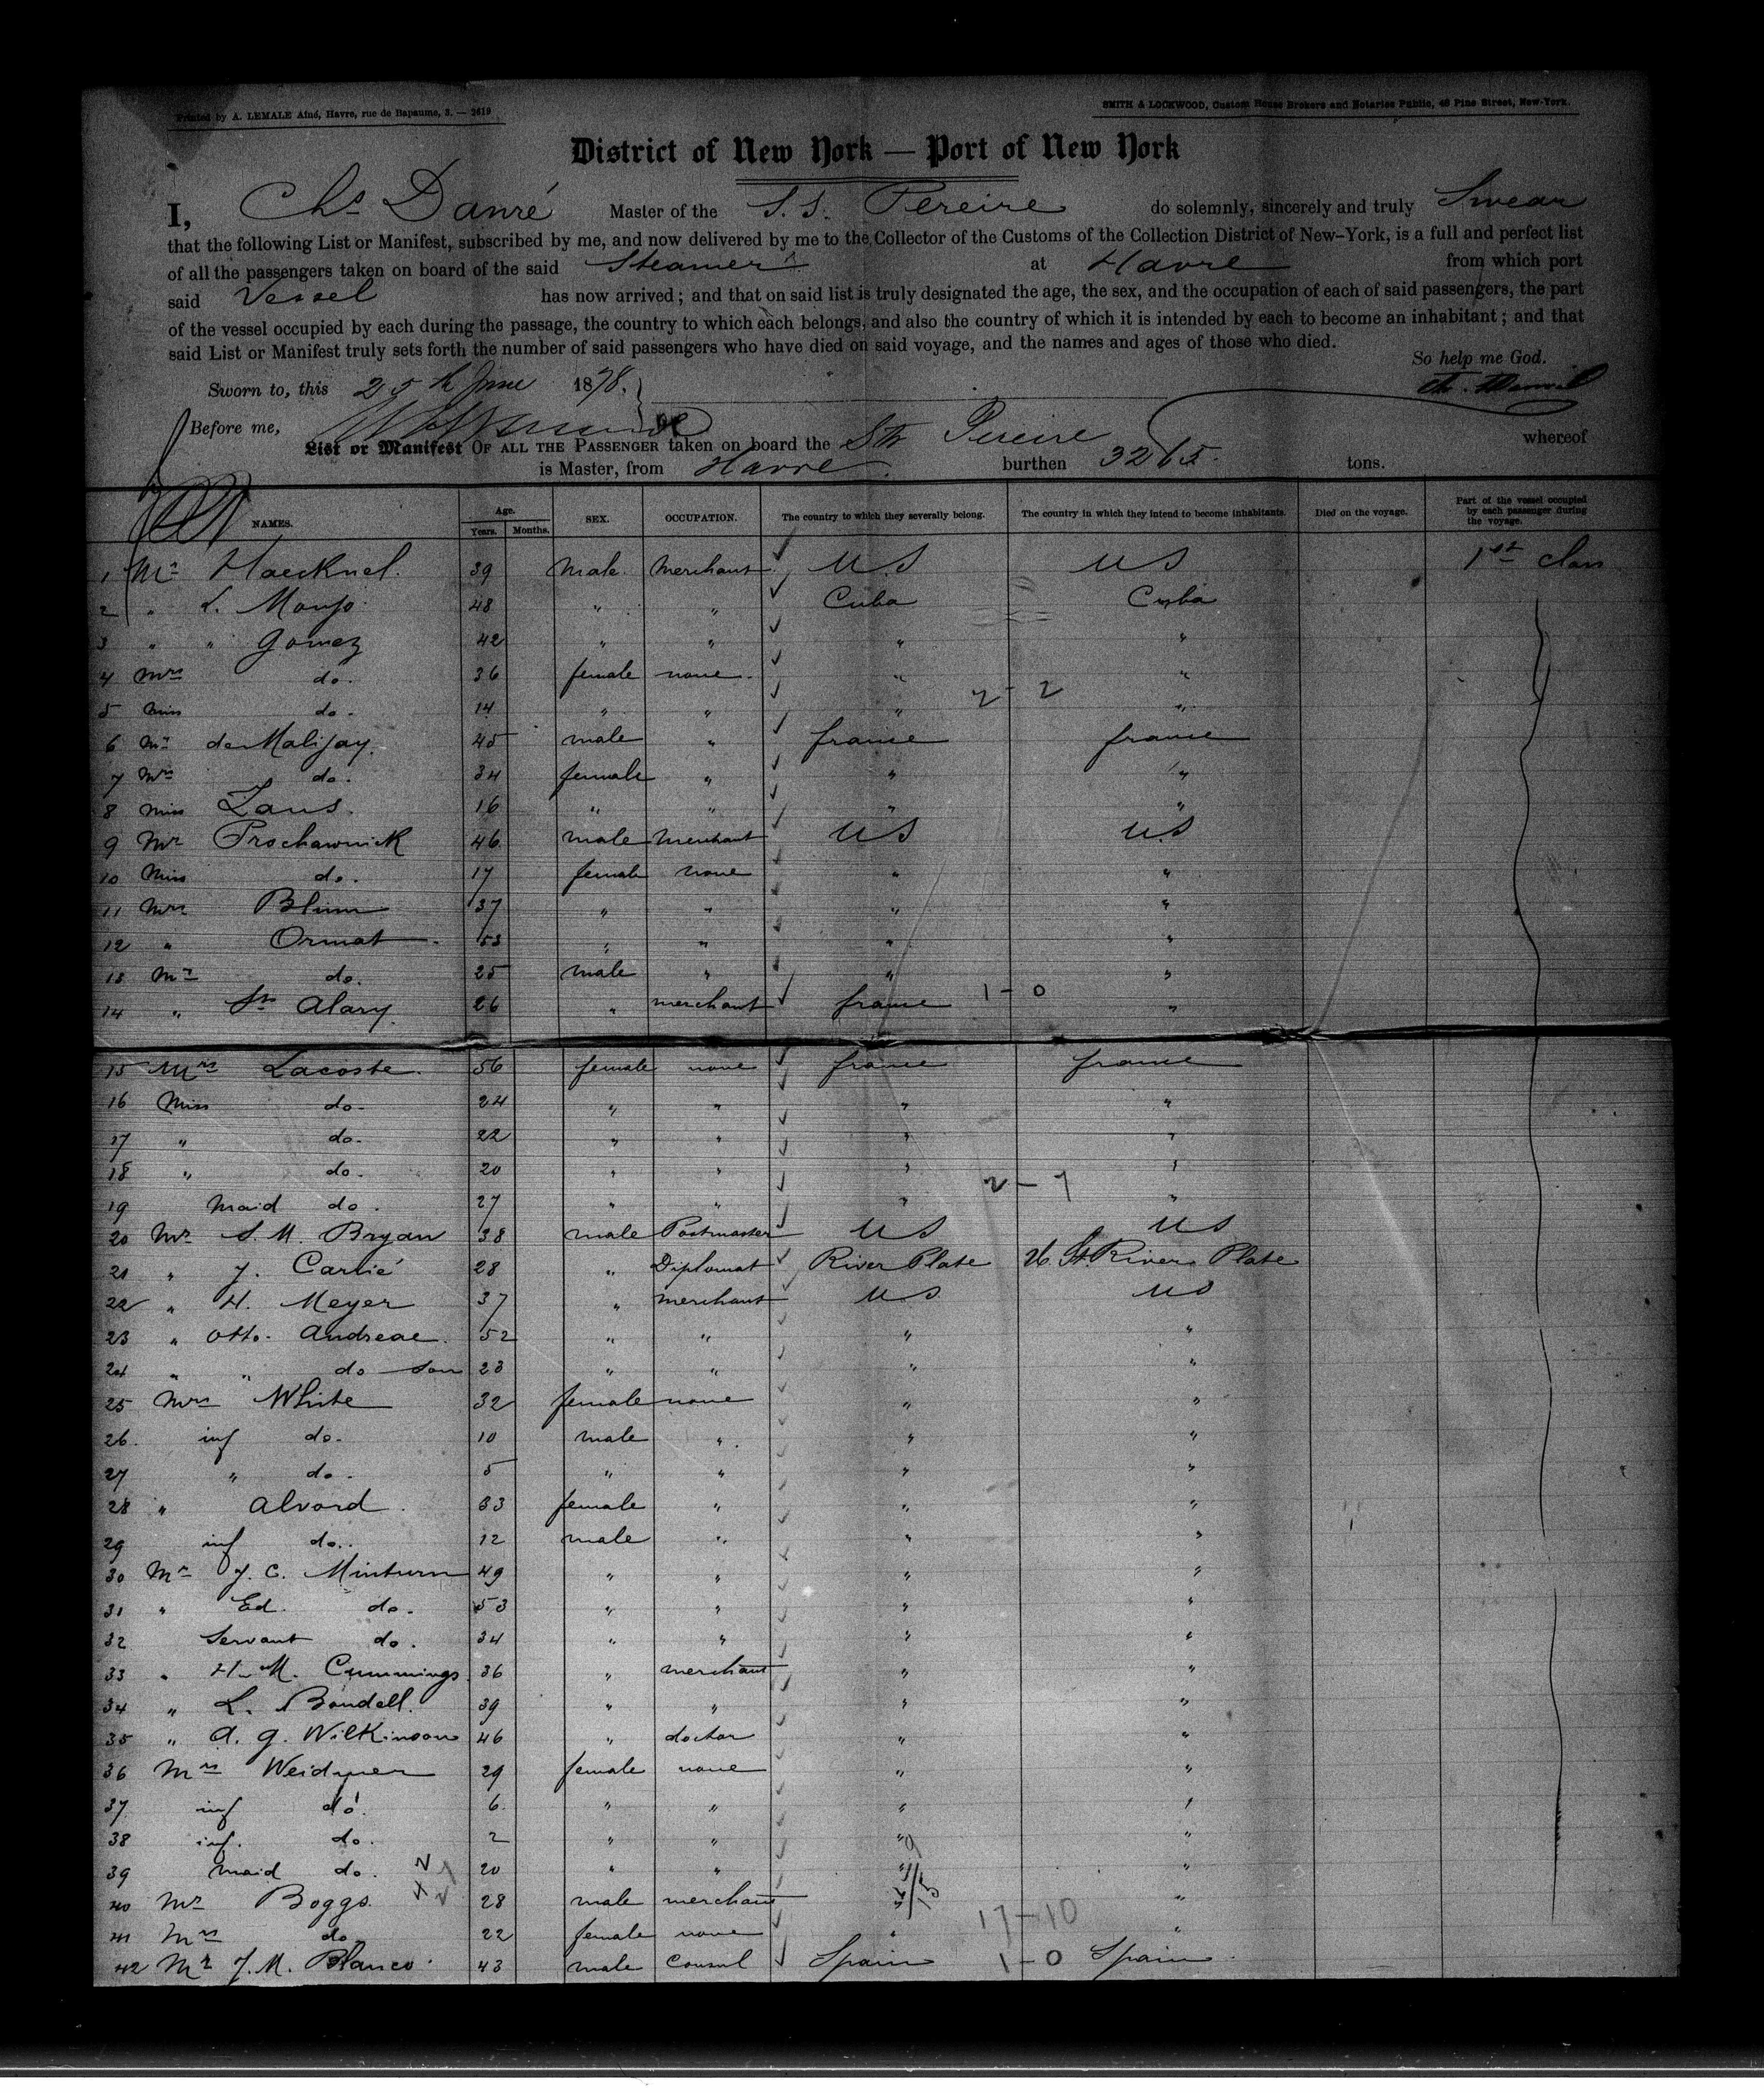 Printed by A. LEMALE Aîné, Havre, rue de Bapaume, 3. — 2619
SMITH & LOCKWOOD, Custom House Brokers and Notaries Public, 48 Pine Street, New-York.
District of New York — Port of New York
I, Chs Danré Master of the S. S. Pereire do solemnly, sincerely and truly Swear
that the following List or Manifest, subscribed by me, and now delivered by me to the Collector of the Customs of the Collection District of New-York, is a full and perfect list
of all the passengers taken on board of the said Steamer at Havre from which port
said Vessel has now arrived; and that on said list is truly designated the age, the sex, and the occupation of each of said passengers, the part
of the vessel occupied by each during the passage, the country to which each belongs, and also the country of which it is intended by each to become an inhabitant; and that
said List or Manifest truly sets forth the number of said passengers who have died on said voyage, and the names and ages of those who died.
So help me God.
Sworn to, this 25th June 1878.
Before me,
List or Manifest OF ALL THE PASSENGER taken on board the Str Pereire whereof
is Master, from Havre burthen 3265 tons.
NAMES. Age. Years. Months. SEX. OCCUPATION. The country to which they severally belong. The country in which they intend to become inhabitants. Died on the voyage. Part of the vessel occupied by each passenger during the voyage.
1 Mr Haecknel. 39 Male. Merchant U.S U.S 1st class
2 " L. Monjo. 48 " " Cuba Cuba
3 " " Gomez 42 " " " "
4 Mrs do. 36 female none. " "
2 - 2
5 Miss do. 14 " " " "
6 Mr de Malijay. 45 male " france france
7 Mrs do. 34 female " " "
8 Miss Laus. 16 " " " "
9 Mr Prochawnick 46 male Merchant U.S U.S
10 Miss do. 17 female none " "
11 Mrs Blum 37 " " " "
12 " Ormat. 53 " " " "
13 Mr do. 25 male " " "
14 " St Alary. 26 " merchant france 1 - 0 "
15 Mrs Lacoste. 56 female none france france
16 Miss do. 24 " " " "
17 " do. 22 " " " "
18 " do. 20 " " " "
2 - 7
19 Maid do. 27 " " " "
20 Mr S. M. Bryan 38 male Postmaster U.S U.S
21 " J. Carlié 28 " Diplomat River Plate River Plate
22 " H. Meyer 37 " merchant U.S U.S
23 " Otto. Andreae. 52 " " " "
24 " " do son 23 " " " "
25 Mrs White 32 female none " "
26. inf do. 10 male " " "
27 " do. 5 " " " "
28 " Alvord. 33 female " " "
29 inf do. 12 male " " "
30 Mr J. C. Minturn 49 " " " "
31 " Ed. do. 53 " " " "
32 Servant do. 34 " " " "
33 " H. M. Cummings. 36 " merchant " "
34 " L. Bondell. 39 " " " "
35 " A. G. Wilkinson 46 " doctor " "
36 Mrs Weidyner 29 female none " "
37 inf do. 6. " " " "
38 inf. do. 2 " " " "
39 maid do. 20 " " " "
40 Mr Boggs. 28 male merchant " "
17 - 10
41 Mrs do. 22 female none " "
42 Mr J. M. Blanco. 43 male Consul Spain 1 - 0 Spain